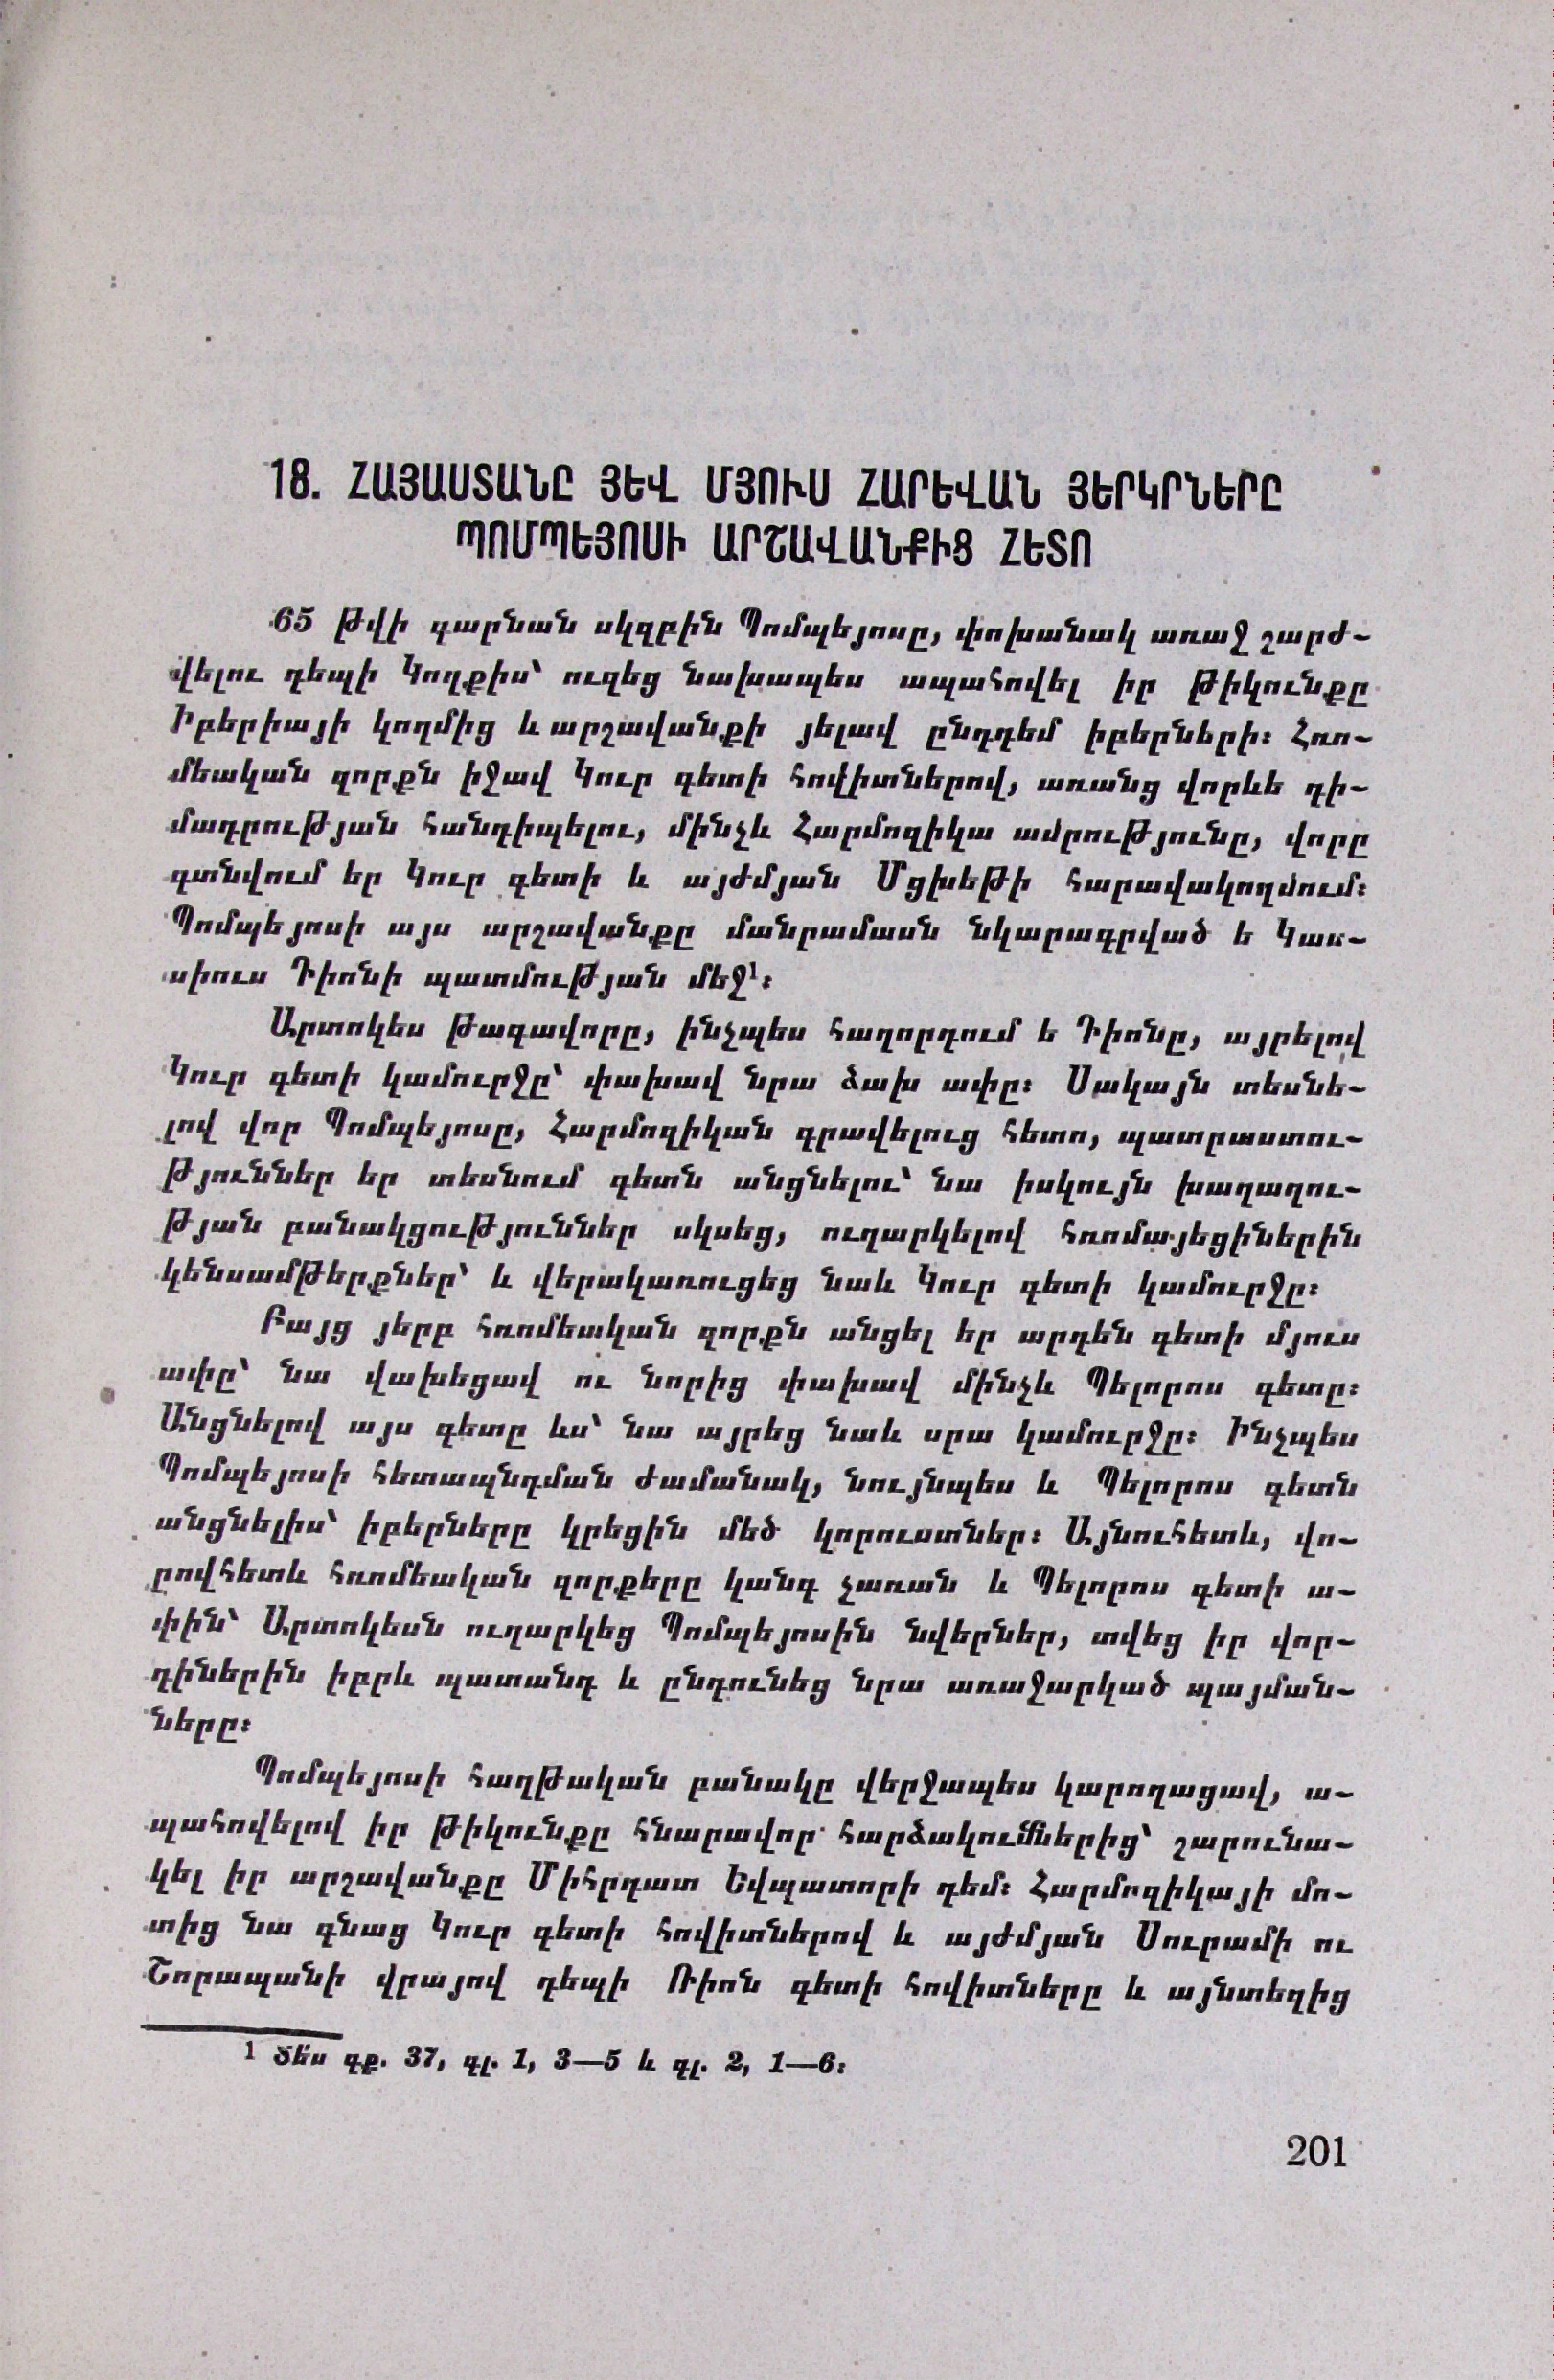 18. ՀԱՅԱՍՏԱՆԸ ՅԵՎ ՄՅՈՒՍ ՀԱՐԵՎԱՆ ՅԵՐԿՐՆԵՐԸ
ՊՈՄՊԵՅՈՍԻ ԱՐՇԱՎԱՆՔԻՑ ՀԵՏՈ
65 թվի գարնան սկզբին Պոմպեյոսը, փոխանակ առաջ շարժ-
վելու դեպի Կողքիս՝ ուզեց նախապես ապահովել իր թիկունքը
Իբերիայի կողմից և արշավանքի յելավ ընդդեմ իբերների: Հռո-
մեական զորքն իջավ Կուր գետի հովիտներով, առանց վորևե դի-
մադրության հանդիպելու, մինչև Հարմոզիկա ամրությունը, վորը
գտնվում եր Կուր գետի և այժմյան Մցխեթի հարավակողմում:
Պոմպեյոսի այս արշավանքը մանրամասն նկարագրված ե Կաս-
սիուս Դիոնի պատմության մեջ¹:
Արտոկես թագավորը, ինչպես հաղորդում ե Դիոնը, այրելով
Կուր գետի կամուրջը՝ փախավ նրա ձախ ափը: Սակայն տեսնե-
լով վոր Պոմպեյոսը, Հարմոզիկան գրավելուց հետո, պատրաստու-
թյուններ եր տեսնում գետն անցնելու՝ նա իսկույն խաղաղու-
թյան բանակցություններ սկսեց, ուղարկելով հռոմայեցիներին
կենսամթերքներ՝ և վերակառուցեց նաև Կուր գետի կամուրջը:
Բայց յերբ հռոմեական զորքն անցել եր արդեն գետի մյուս
ափը՝ նա վախեցավ ու նորից փախավ մինչև Պելորոս գետը:
Անցնելով այս գետը ևս՝ նա այրեց նաև սրա կամուրջը: Ինչպես
Պոմպեյոսի հետապնդման ժամանակ, նույնպես և Պելորոս գետն
անցնելիս՝ իբերները կրեցին մեծ կորուստներ: Այնուհետև, վո-
րովհետև հռոմեական զորքերը կանգ չառան և Պելորոս գետի ա-
փին՝ Արտոկեսն ուղարկեց Պոմպեյոսին նվերներ, տվեց իր վոր-
դիներին իբրև պատանդ և ընդունեց նրա առաջարկած պայման-
ները:
Պոմպեյոսի հաղթական բանակը վերջապես կարողացավ, ա-
պահովելով իր թիկունքը հնարավոր հարձակումներից՝ շարունա-
կել իր արշավանքը Միհրդատ Եվպատորի դեմ: Հարմոզիկայի մո-
տից նա գնաց Կուր գետի հովիտներով և այժմյան Սուրամի ու
Շորապանի վրայով դեպի Ռիոն գետի հովիտները և այնտեղից
1 Տես գք. 37, գլ. 1, 3—5 և գլ. 2, 1—6:
201